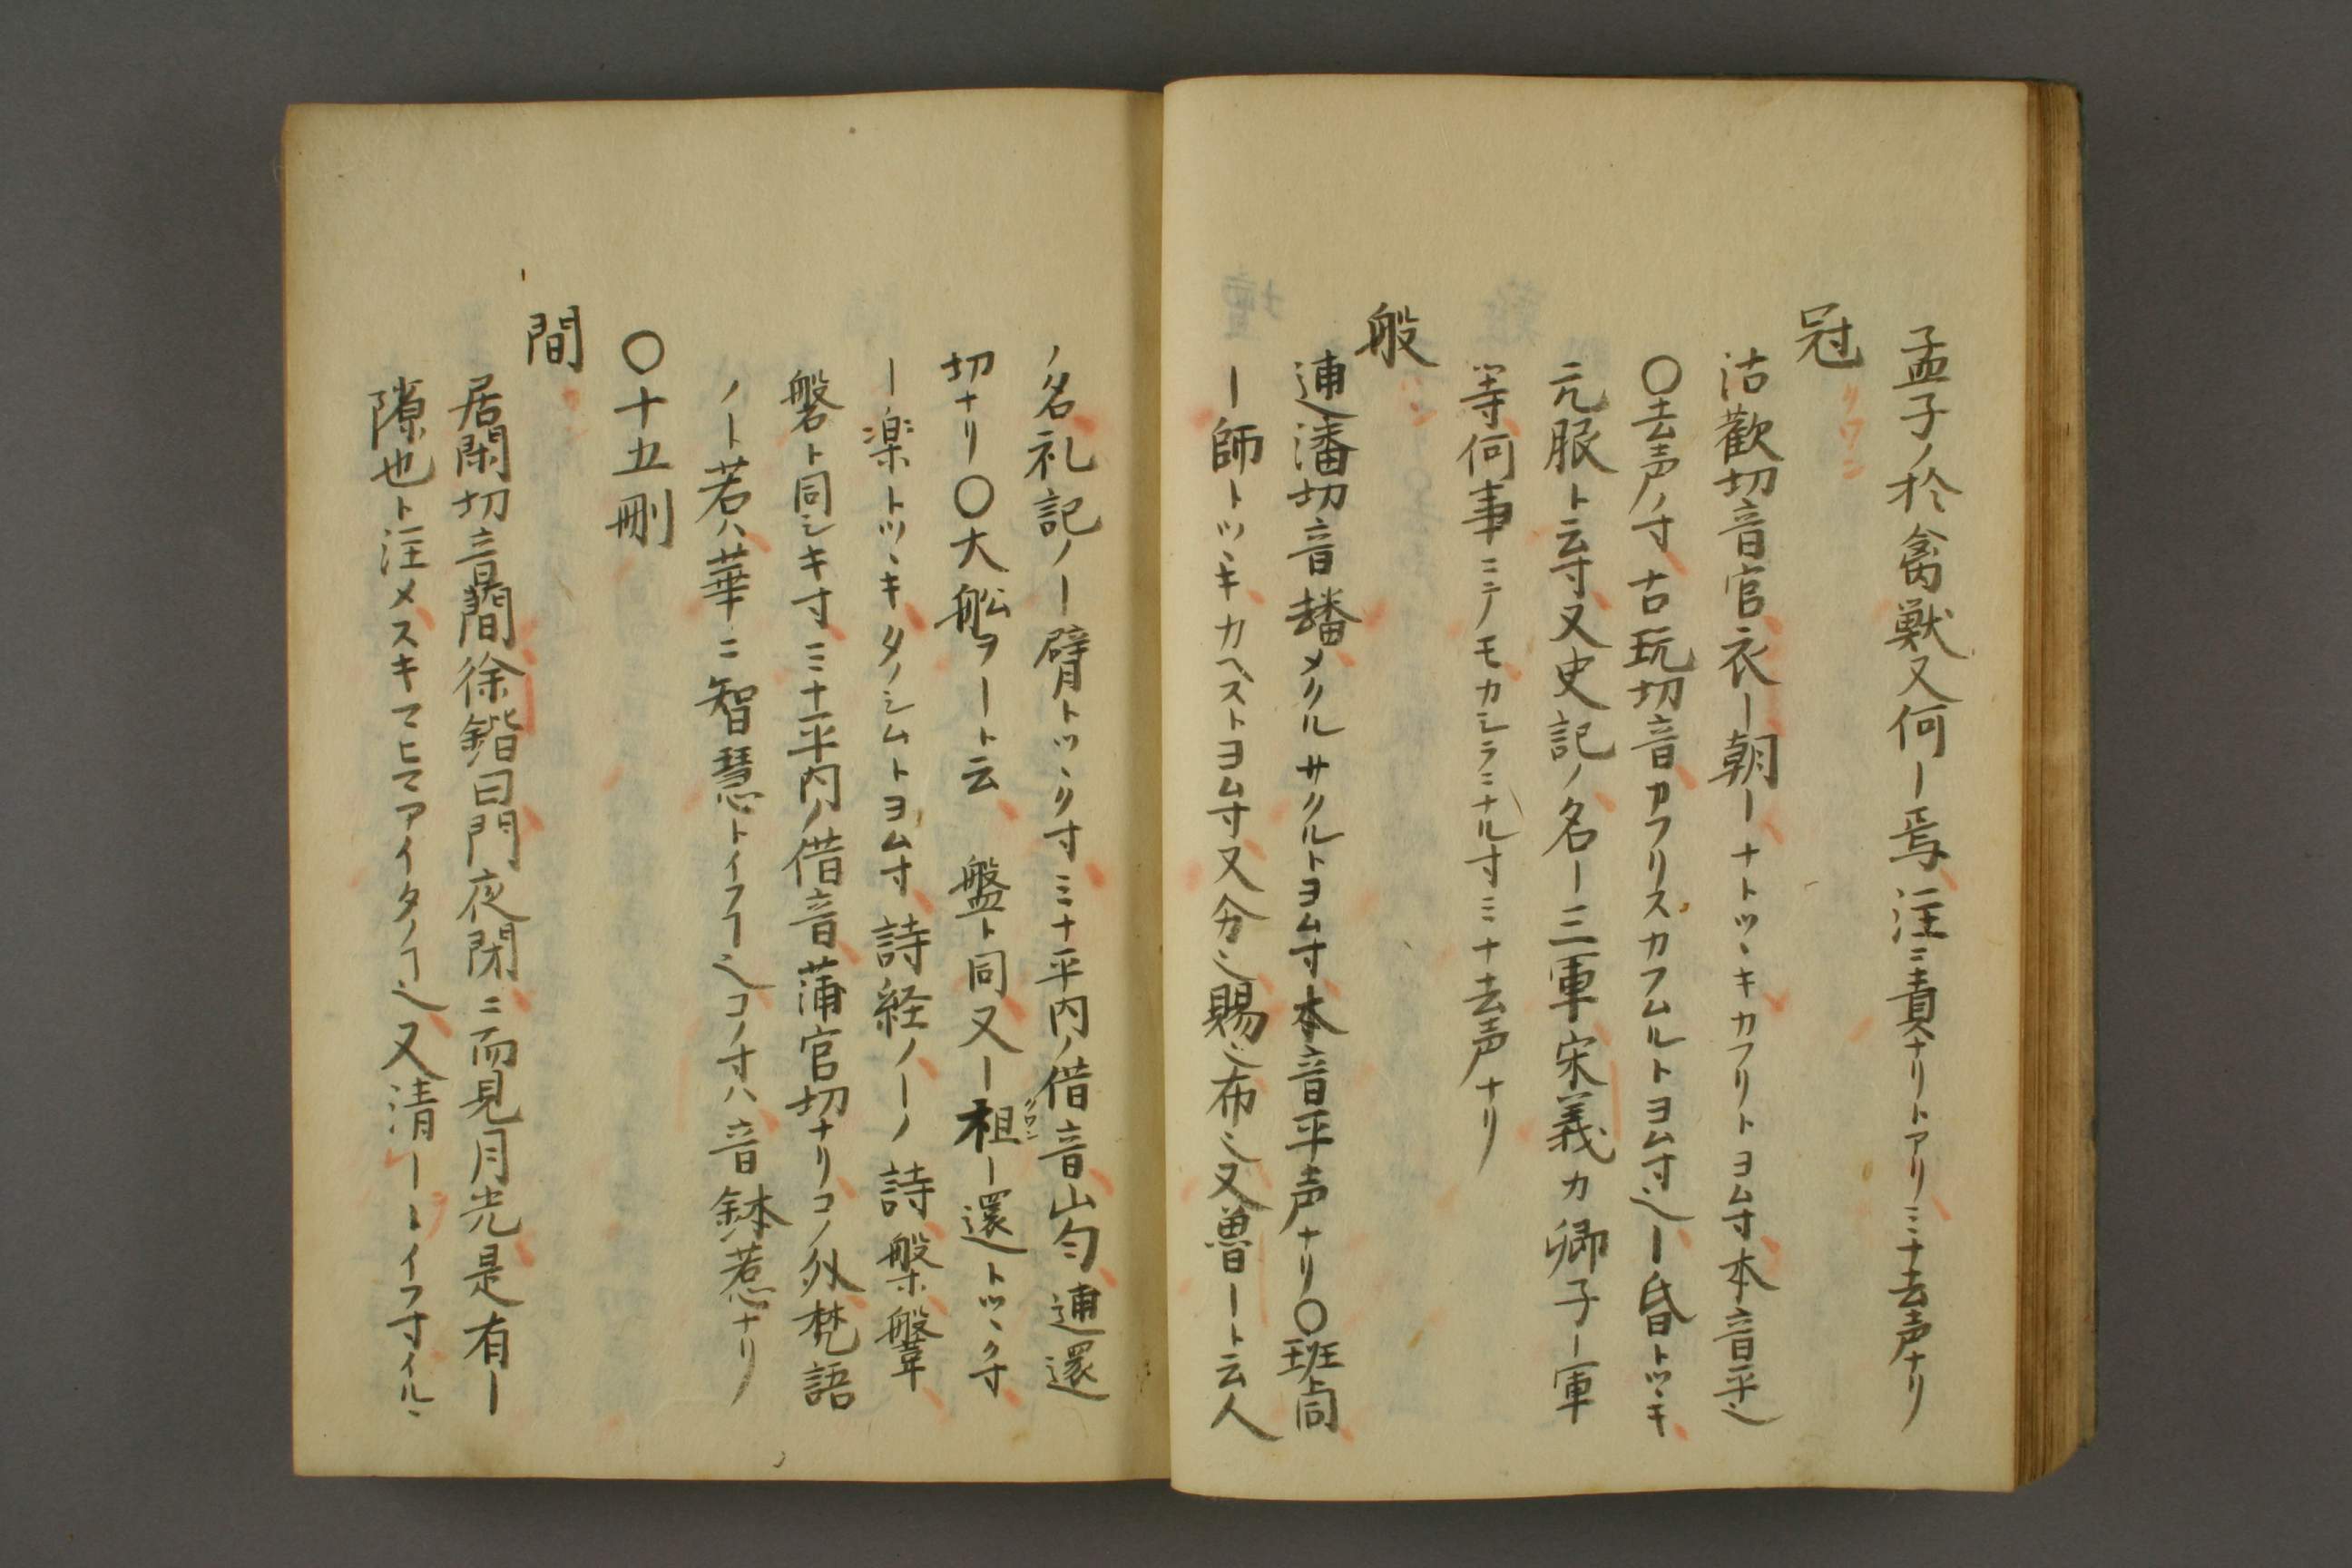 孟子ノ於禽獣又何ー焉注ニ責ナリトアリミナ去声ナリ
冠
クワン
沽歡切音官衣ー朝ーナトツヽキカフリトヨム寸本音平也
〇去声ノ寸古玩切音カフリスカフムルトヨム寸也ー昏トツヽキ
元服ト云寸又史記ノ名ー三軍宋義カ卿子ー軍
等何事ニテモカシラニナル寸ミナ去声ナリ
般
ハン
逋潘切音メクルサクルトヨム寸本音平声ナリ〇班同
ー師トツヽキカヘストヨム寸又分也賜也布也又魯ート云人
ノ名礼記ノー臂トツヽク寸ミナ平内ノ借音山勻逋還
切ナリ〇大舩ヲート云 盤ト同又ー祖ー還トツヽク寸
ー楽トツヽキタノシムトヨム寸詩経ノーノ詩槃鞶
磐ト同シキ寸ミナ平内ノ借音蒲官切ナリコノ外梵語
ノート若ハ華ニ智慧トイフヿ也コノ寸ハ音鉢惹ナリ
〇十五刪
間
居閑切音蕑徐鍇曰門夜閉ニ而見月光是有ー
隙也ト注メスキマヒマアイタノヿ也又清ーヽイフ寸イルヽ